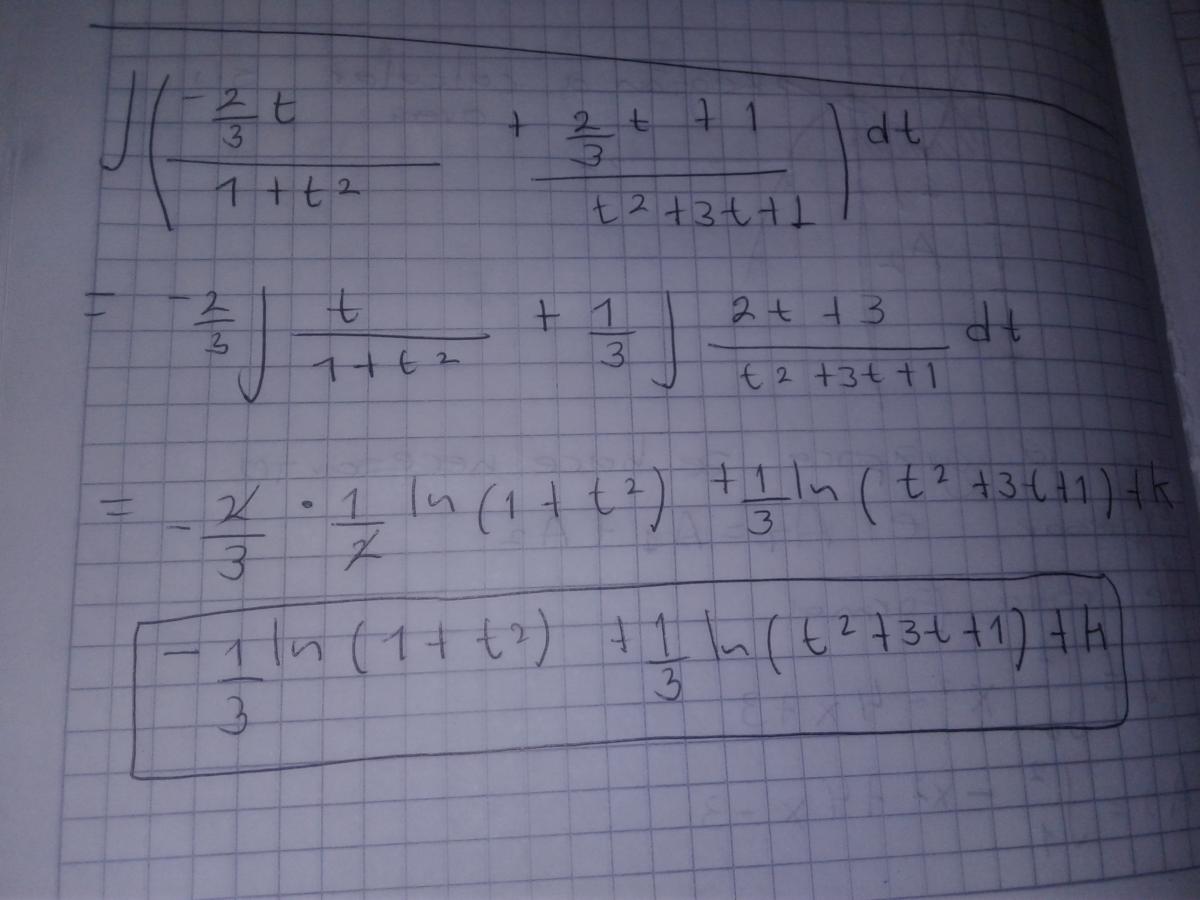 ∫ ( (-2/3 t)/(1+t²) + (2/3 t + 1)/(t²+3t+1) ) dt
= -2/3 ∫ t/(1+t²) + 1/3 ∫ (2t+3)/(t²+3t+1) dt
= -2/3 · 1/2 ln(1+t²) + 1/3 ln(t²+3t+1)+k
-1/3 ln(1+t²) + 1/3 ln(t²+3t+1)+k